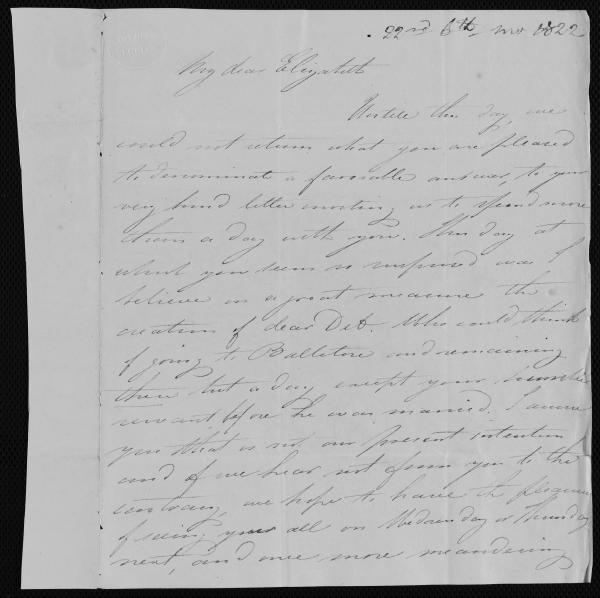 22nd 6th mo 1822
My dear Elizabeth
Untill this day, we
could not return what you are pleased
to denominate a favorable answer, to your
very kind letter inviting us to spend more
than a day with you. This day at
which you seem so surprised was I
believe in a great measure the
creation of dear Deb. Who could think
of going to Ballitore and remaining
there but a day except your humble
servant before he was married. I assure
you that is not our present intention
and if we hear not from you to the
contrary, we hope to have the pleasure
of seeing you all on Wednesday or Thursday
next, and once more meandering